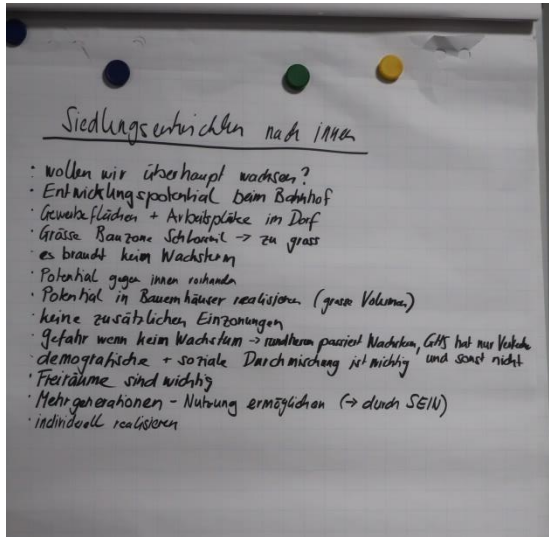 Siedlungsentwicklung nach innen
· wollen wir überhaupt wachsen?
· Entwicklungspotential beim Bahnhof
· Gewerbeflächen + Arbeitsplätze im Dorf
· Grösse Bauzone → zu gross
· es braucht kein Wachstum
· Potential gegen innen vorhanden
· Potential in Bauernhäuser realisieren (grosse Volumen)
· keine zusätzlichen Einzonungen
· gefahr wenn kein Wachstum → rundherum passiert Wachstum, GHS hat nur Verkehr
· demografische + soziale Durchmischung ist wichtig und sonst nicht
· Freiräume sind wichtig
· Mehrgenerationen - Nutzung ermöglichen (→ durch SEIN)
· individuell realisieren